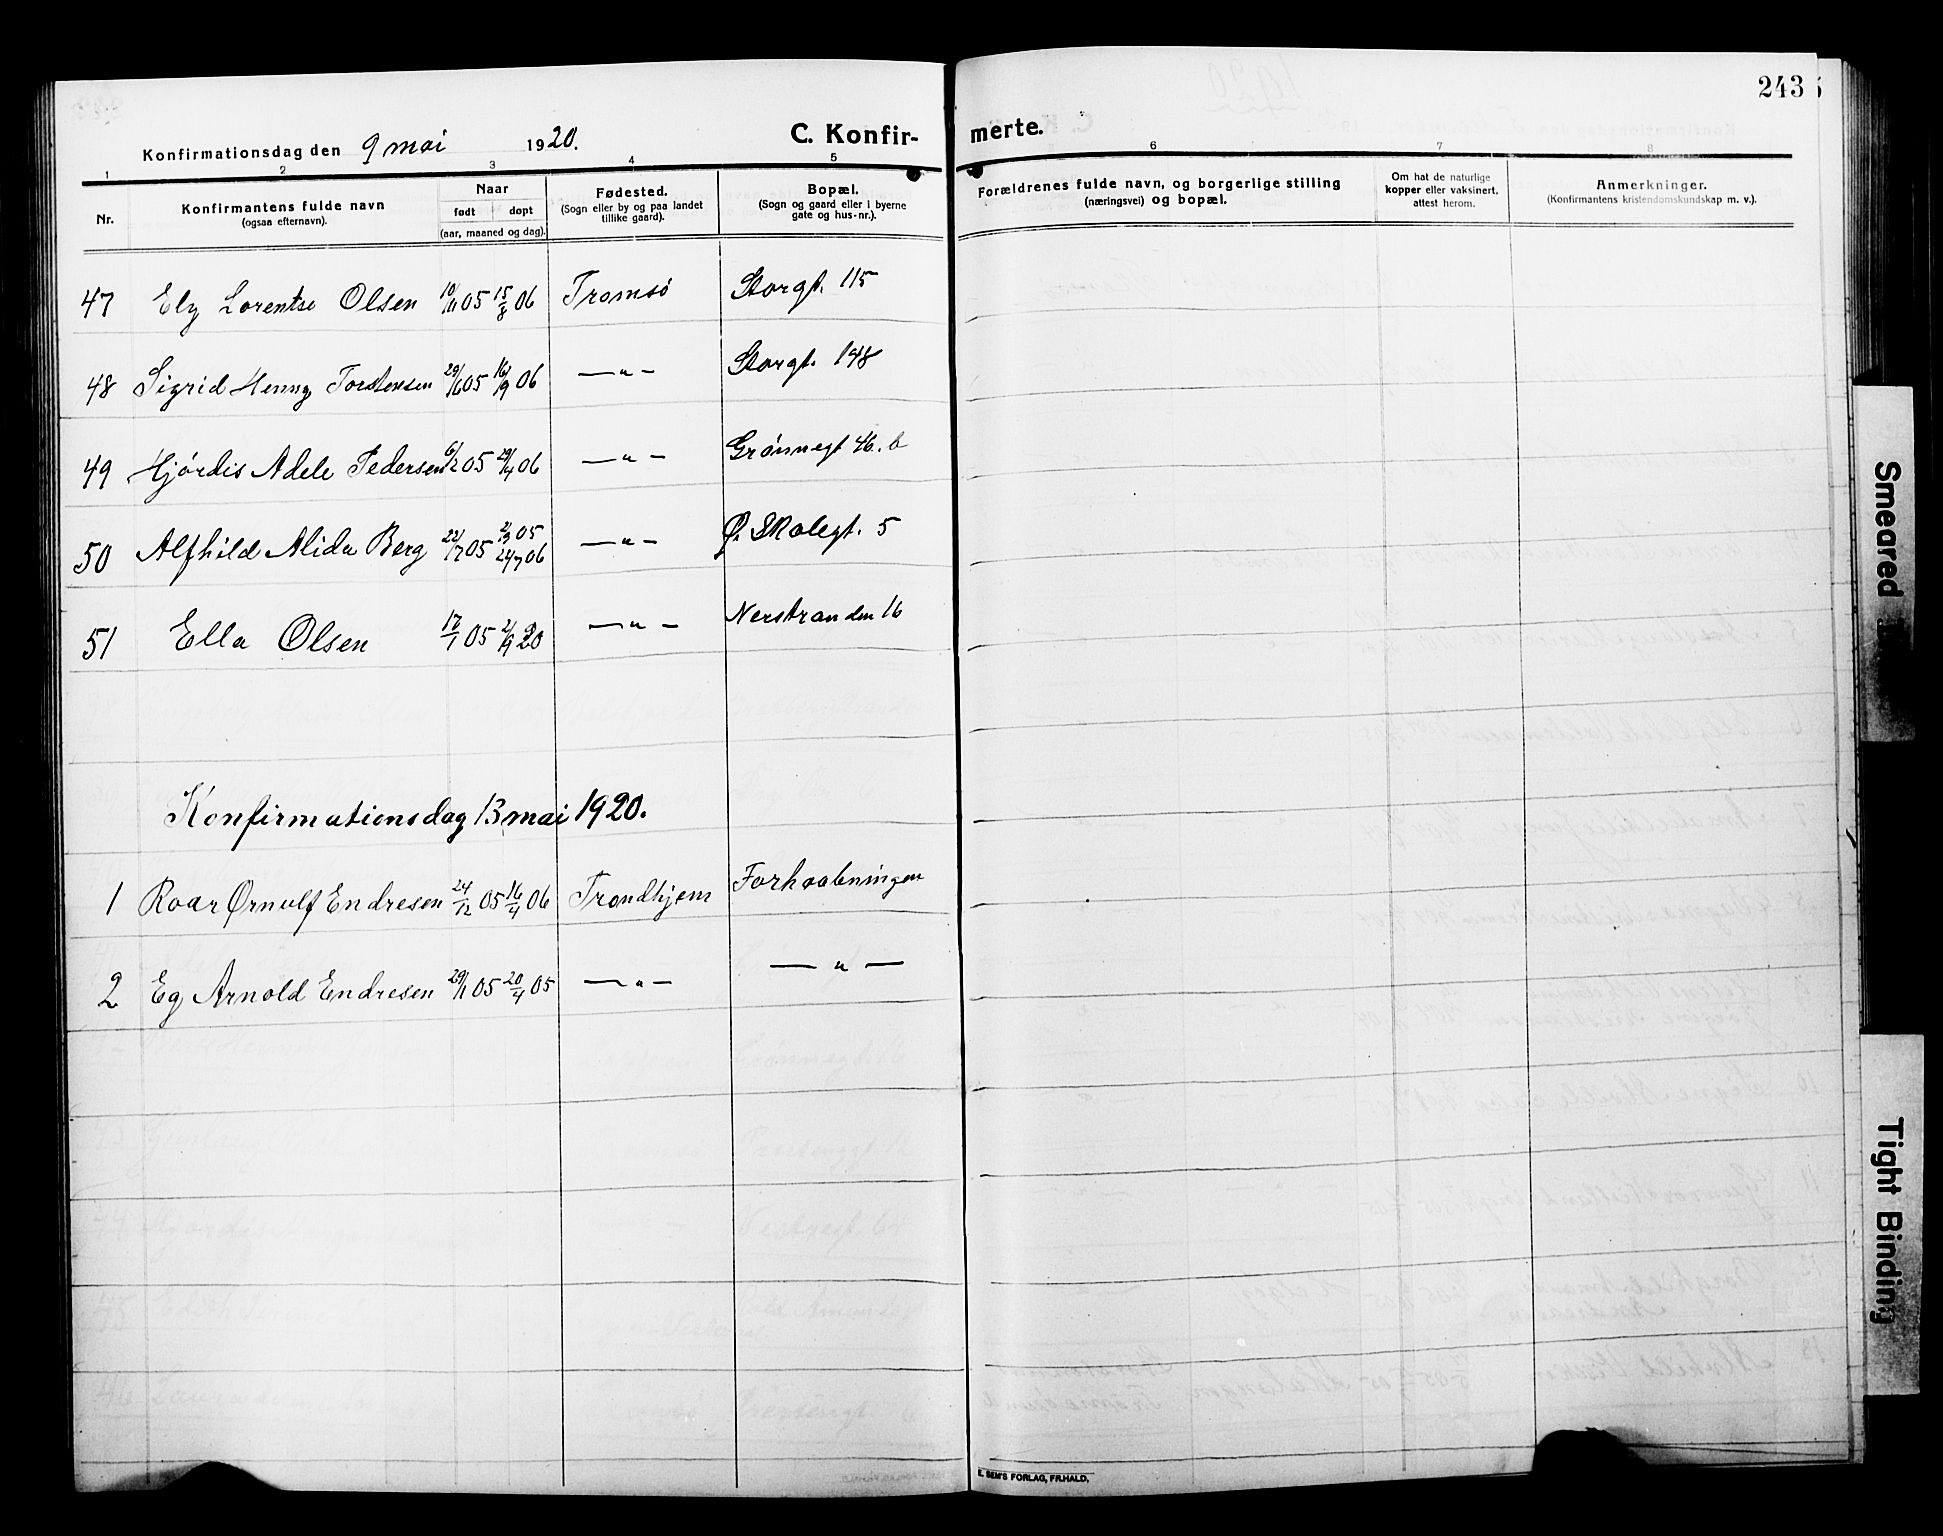 243
Konfirmationsdag den 9 mai 1920.
C. Konfirmerte.
1 2 3 4 5 6 7 8
Nr.
Konfirmantens fulde navn
(ogsaa efternavn).
Naar
født døpt
(aar, maaned og dag).
Fødested.
(Sogn eller by og paa landet
tillike gaard).
Bopæl.
(Sogn og gaard eller i byerne
gate og hus-nr.).
Forældrenes fulde navn, og borgerlige stilling
(næringsvei) og bopæl.
Om hat de naturlige
kopper eller vaksinert,
attest herom.
Anmerkninger.
(Konfirmantens kristendomskundskap m. v.).
47 Ely Lorentse Olsen 10/11 05 15/8 06 Tromsö Storgt. 115
48 Sigrid Henny Torstensen 29/6 05 16/9 06 —„— Storgt. 148
49 Hjørdis Adele Pedersen 6/2 05 29/4 06 —„— Grönnegt 46. b
50 Alfhild Alida Berg 22/17 05 2/9 05 —„— Ø. Skolegt. 5
24/7 06
51 Ella Olsen 17/1 05 2/9 20 —„— Nerstranden 16
Konfirmationsdag 13 mai 1920.
1 Roar Ørnulf Endresen 24/12 05 16/4 06 Trondhjem Forhaabningen
2 Eg Arnold Endresen 29/1 05 20/4 05 —„— —„—
E. SEM'S FORLAG, FR.HALD.
Smeared
Tight Binding